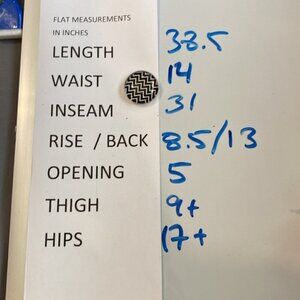 FLAT MEASUREMENTS
IN INCHES
LENGTH 38.5
WAIST 14
INSEAM 31
RISE / BACK 8.5/13
OPENING 5
THIGH 9+
HIPS 17+